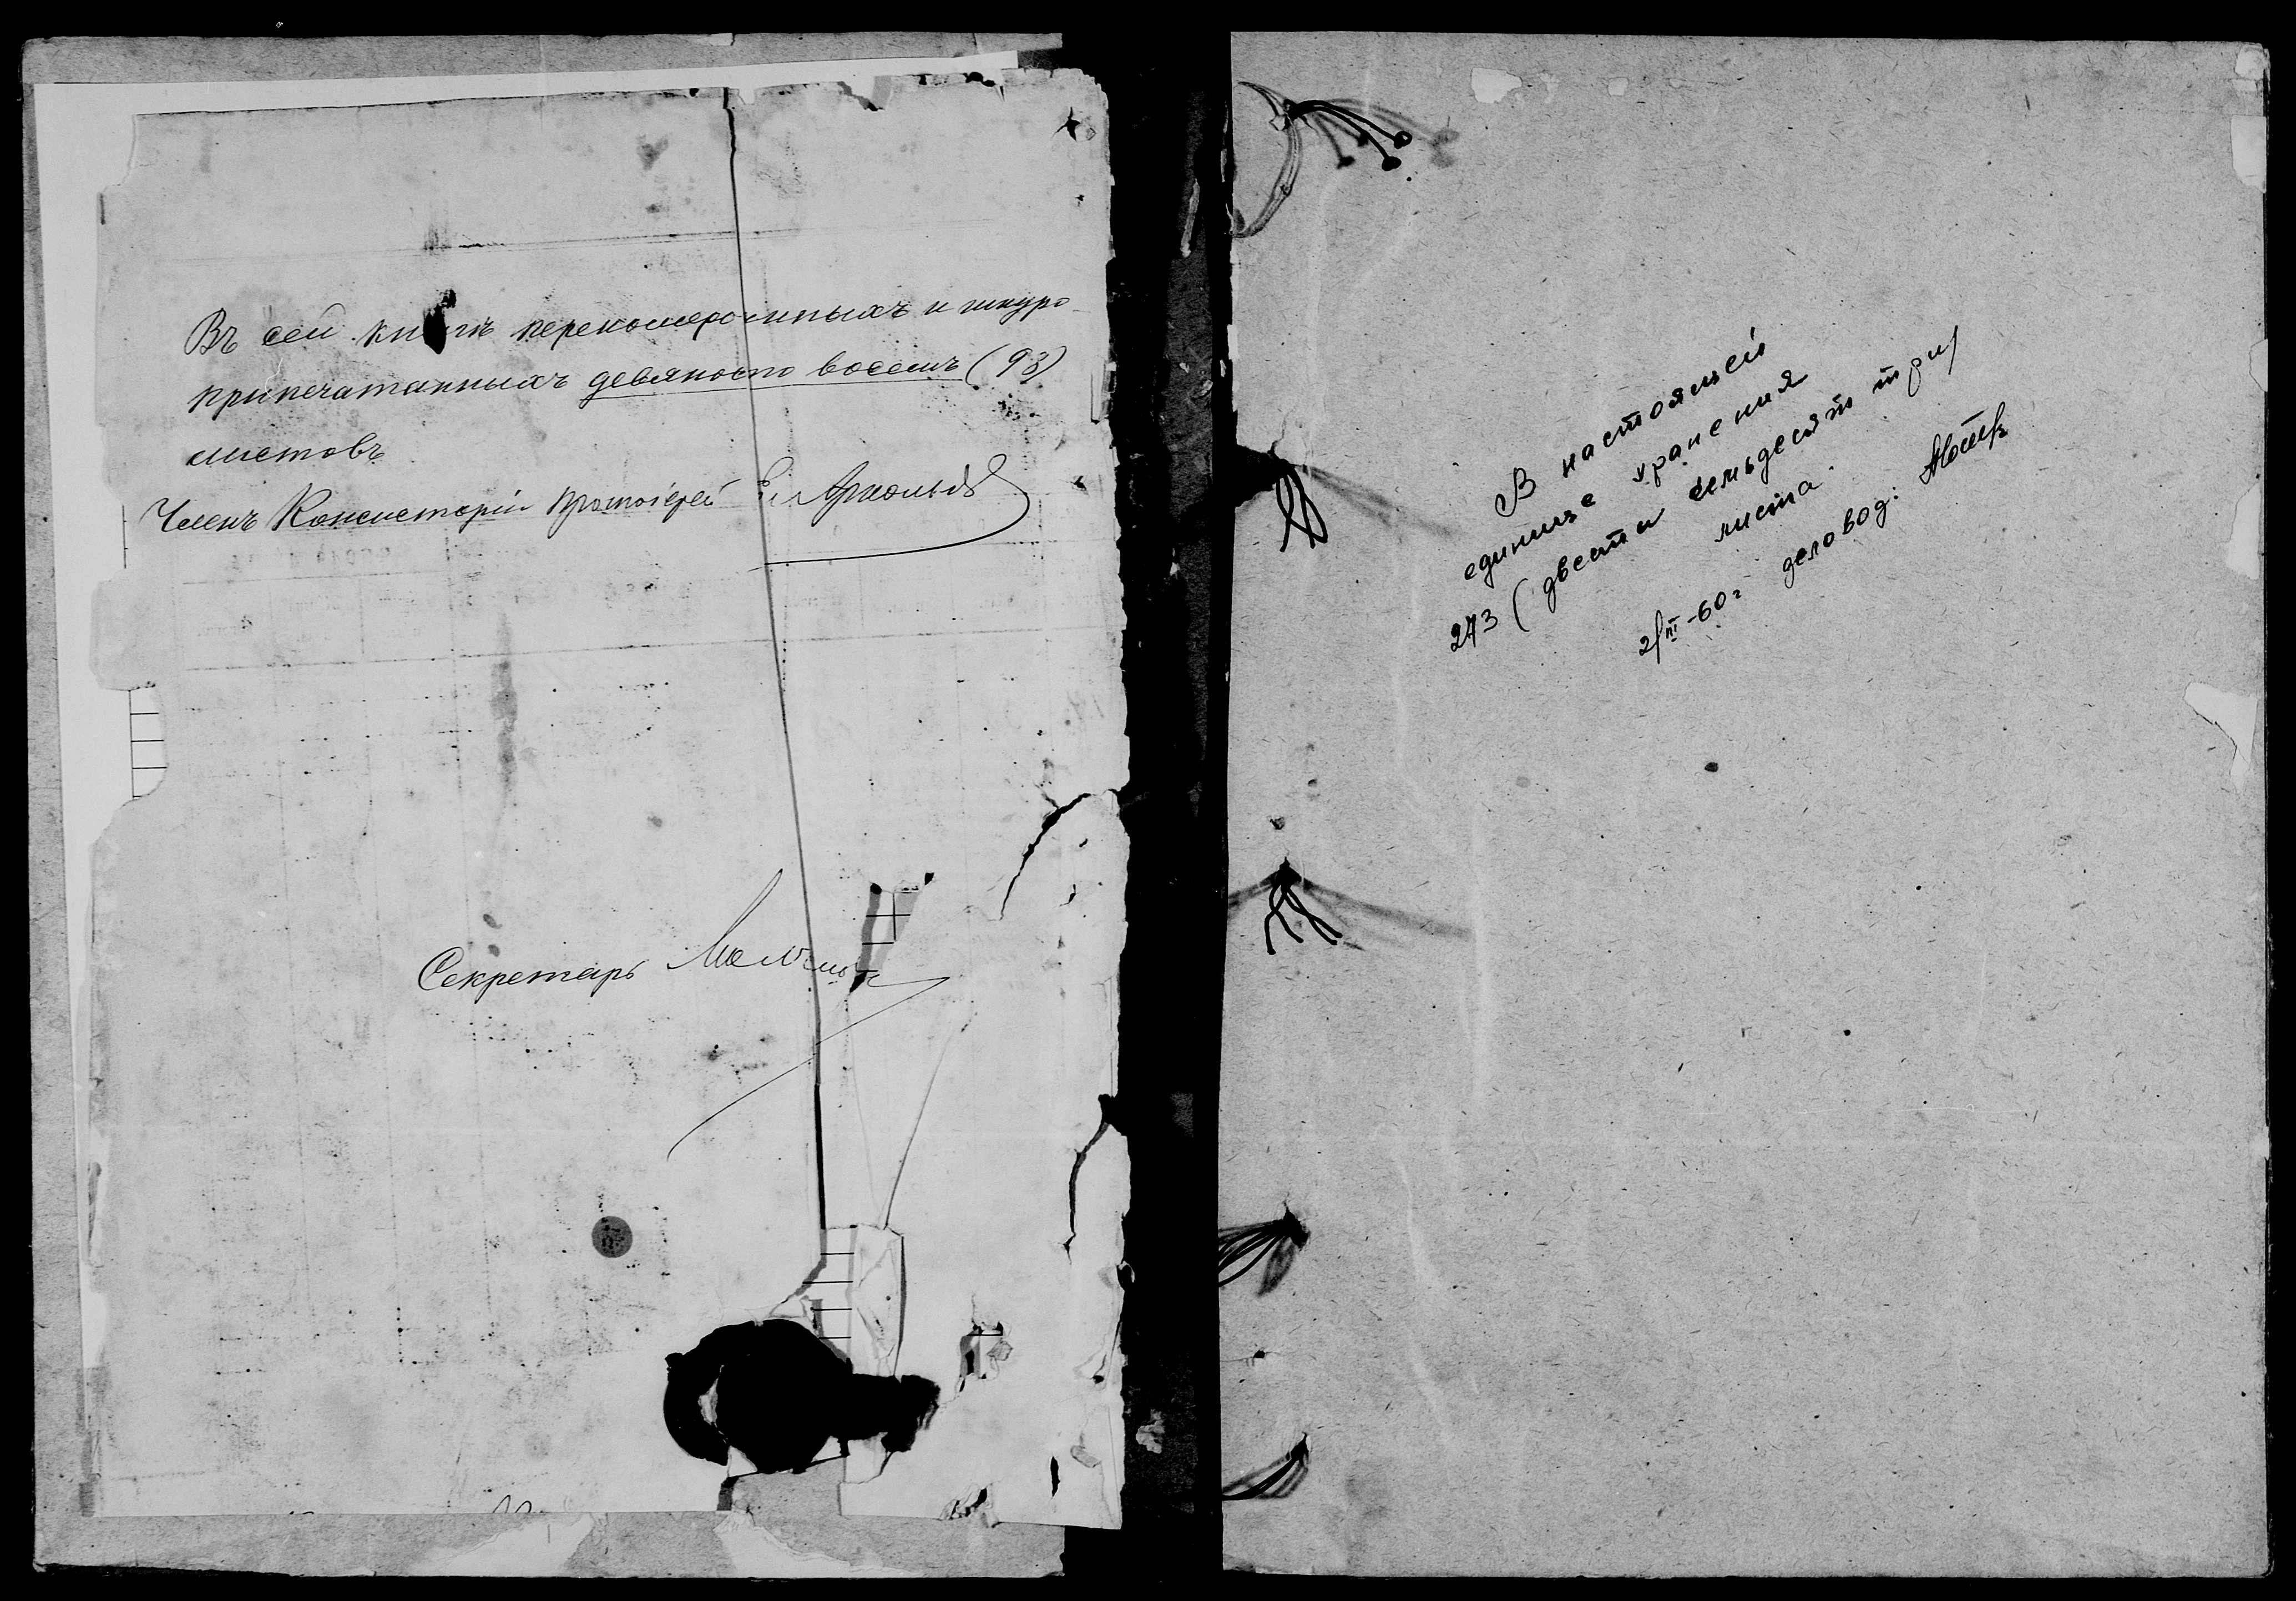 Въ сей книгѣ переномерованныхъ и шнуро
припечатанныхъ девяносто восемь (98)
листовъ
Членъ Консисторіи Протоіерей
Секретарь
В настоящей
единице хранения
273 (двести семьдесят три)
листа
2/III-60г деловод: